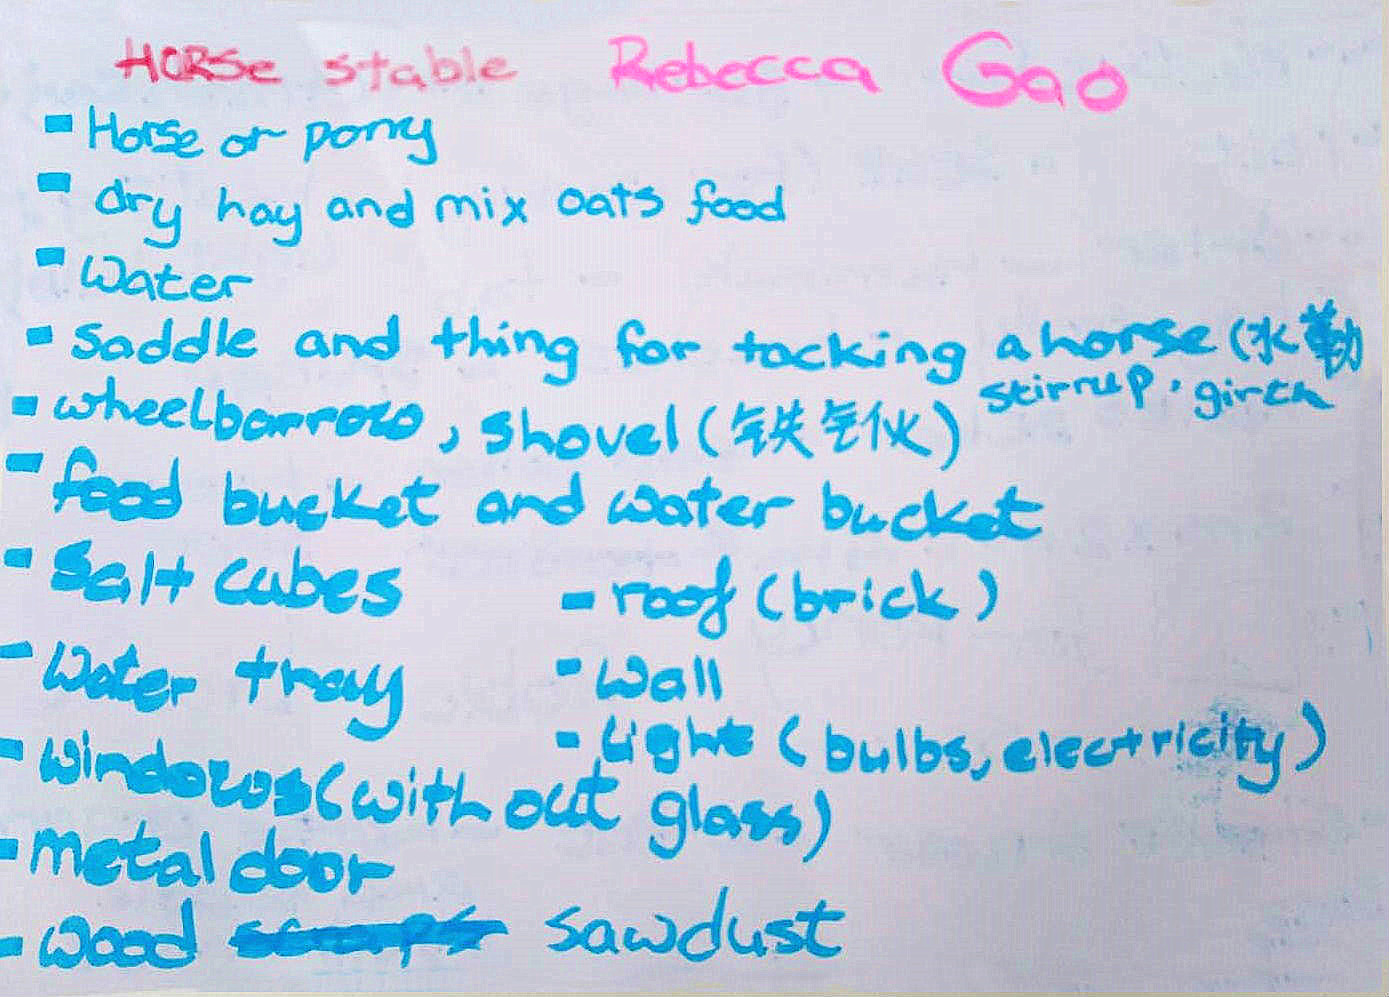 HORSe stable Rebecca Gao
- Horse or pony
- dry hay and mix oats food
- Water
- saddle and thing for tacking a horse (水勒
stirrup. girth
- wheelbarrow, shovel (铁气伙)
- food bucket and water bucket
- Salt cubes
- roof (brick)
- Water tray
- Wall
- Light (bulbs, electricity)
- Windows (without glass)
- metal door
- wood sawdust